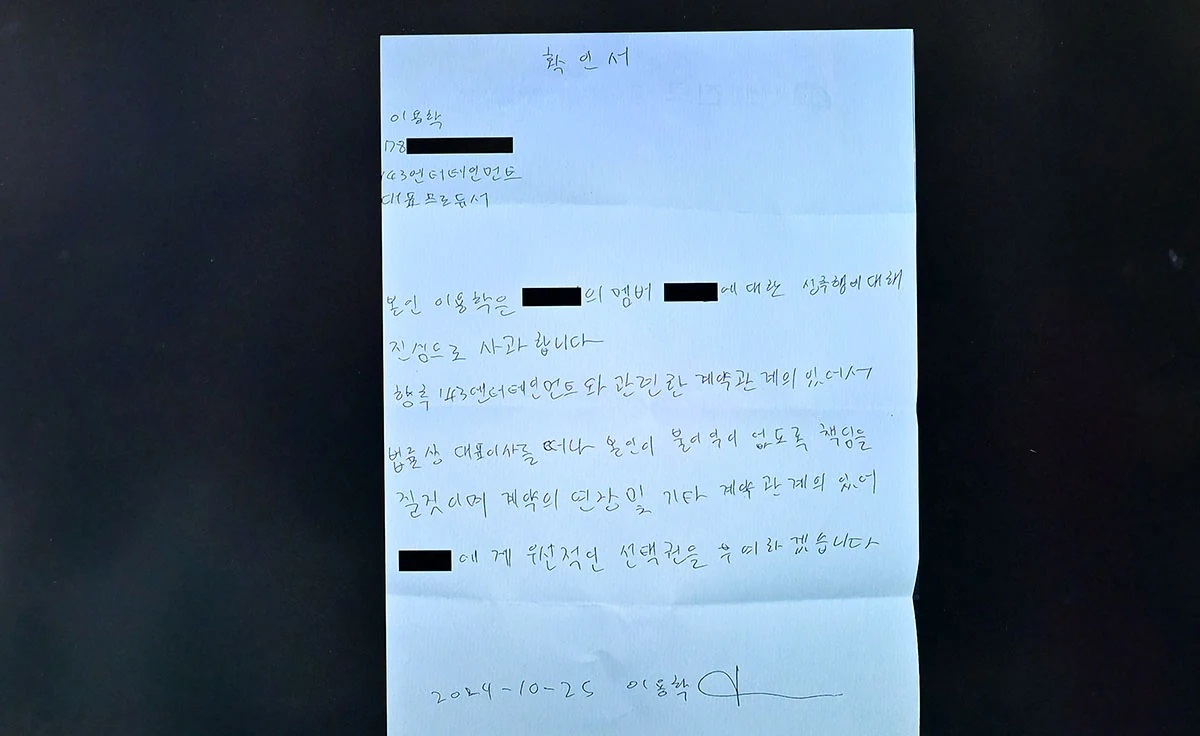 확인서
이용학
78
143엔터테인먼트
대표프로듀서
본인 이용학은 의 멤버 에 대한 성추행에 대해
진심으로 사과합니다
향후 143엔터테인먼트와 관련한 계약관계의 있어서
법률상 대표이사를 떠나 본인이 불이익이 없도록 책임을
질것이며 계약의 연장 및 기타 계약관계의 있어
에게 우선적인 선택권을 부여하겠습니다
2024-10-25 이용학